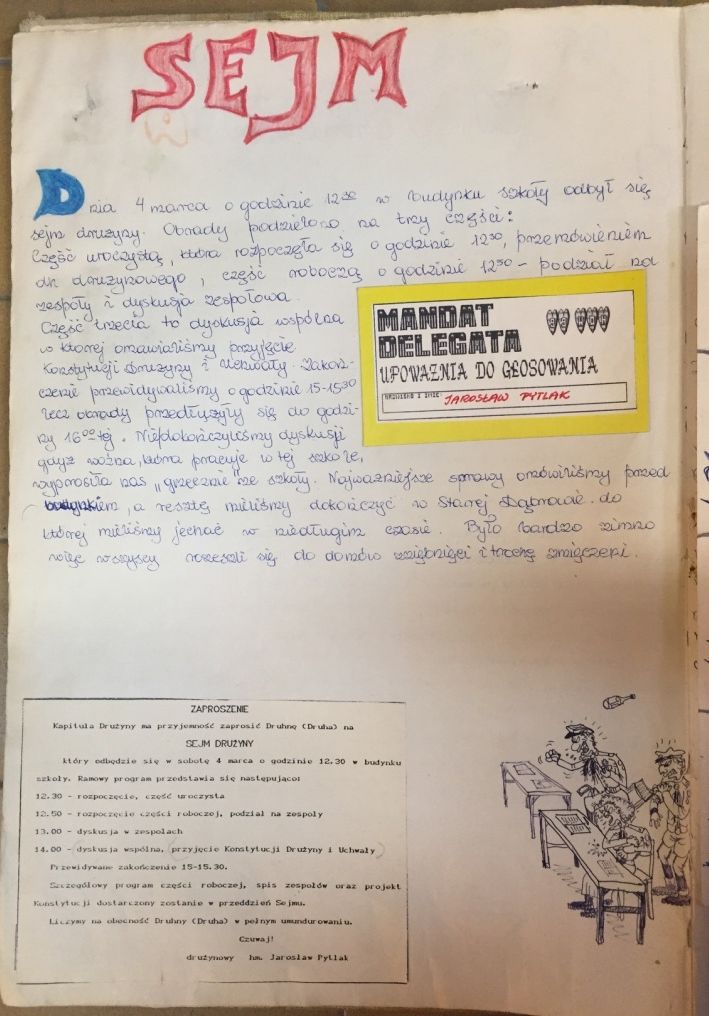 SEJM
Dnia 4 marca o godzinie 12³⁰ w budynku szkoły odbył się
sejm drużyny. Obrady podzielono na trzy części:
Część uroczystą, która rozpoczęła się o godzinie 12³⁰, przemówieniem
dh drużynowego, część roboczą o godzinie 12⁵⁰ - podział na
zespoły i dyskusja zespołowa.
Część trzecia to dyskusja wspólna
w której omawialiśmy przyjęcie
Konstytucji Drużyny i Uchwały. Zakoń-
czenie przewidywaliśmy o godzinie 15-15³⁰
lecz obrady przedłużyły się do godzi-
ny 16⁰⁰tej. Niedokończyliśmy dyskusji
gdyż woźna, która pracuje w tej szkole,
wyprosiła nas „grzecznie" ze szkoły. Najważniejsze sprawy omówiliśmy przed
budynkiem, a resztę mieliśmy dokończyć w Starej Dąbrowie. do
której mieliśmy jechać w niedługim czasie. Było bardzo zimno
więc wszyscy rozeszli się do domów zziębnięci i trochę zmęczeni.
MANDAT
DELEGATA
UPOWAŻNIA DO GŁOSOWANIA
NAZWISKO I IMIĘ JAROSŁAW PYTLAK
ZAPROSZENIE
Kapituła Drużyny ma przyjemność zaprosić Druhnę (Druha) na
SEJM DRUŻYNY
który odbędzie się w sobotę 4 marca o godzinie 12.30 w budynku
szkoły. Ramowy program przedstawia się następująco:
12.30 - rozpoczęcie, część uroczysta
12.50 - rozpoczęcie części roboczej, podział na zespoły
13.00 - dyskusja w zespołach
14.00 - dyskusja wspólna, (przyjęcie Konstytucji Drużyny i Uchwały)
Przewidywane zakończenie 15-15.30.
Szczegółowy program części roboczej, spis zespołów oraz projekt
Konstytucji dostarczony zostanie w przeddzień Sejmu.
Liczymy na obecność Druhny (Druha) w pełnym umundurowaniu.
Czuwaj!
drużynowy hm. Jarosław Pytlak